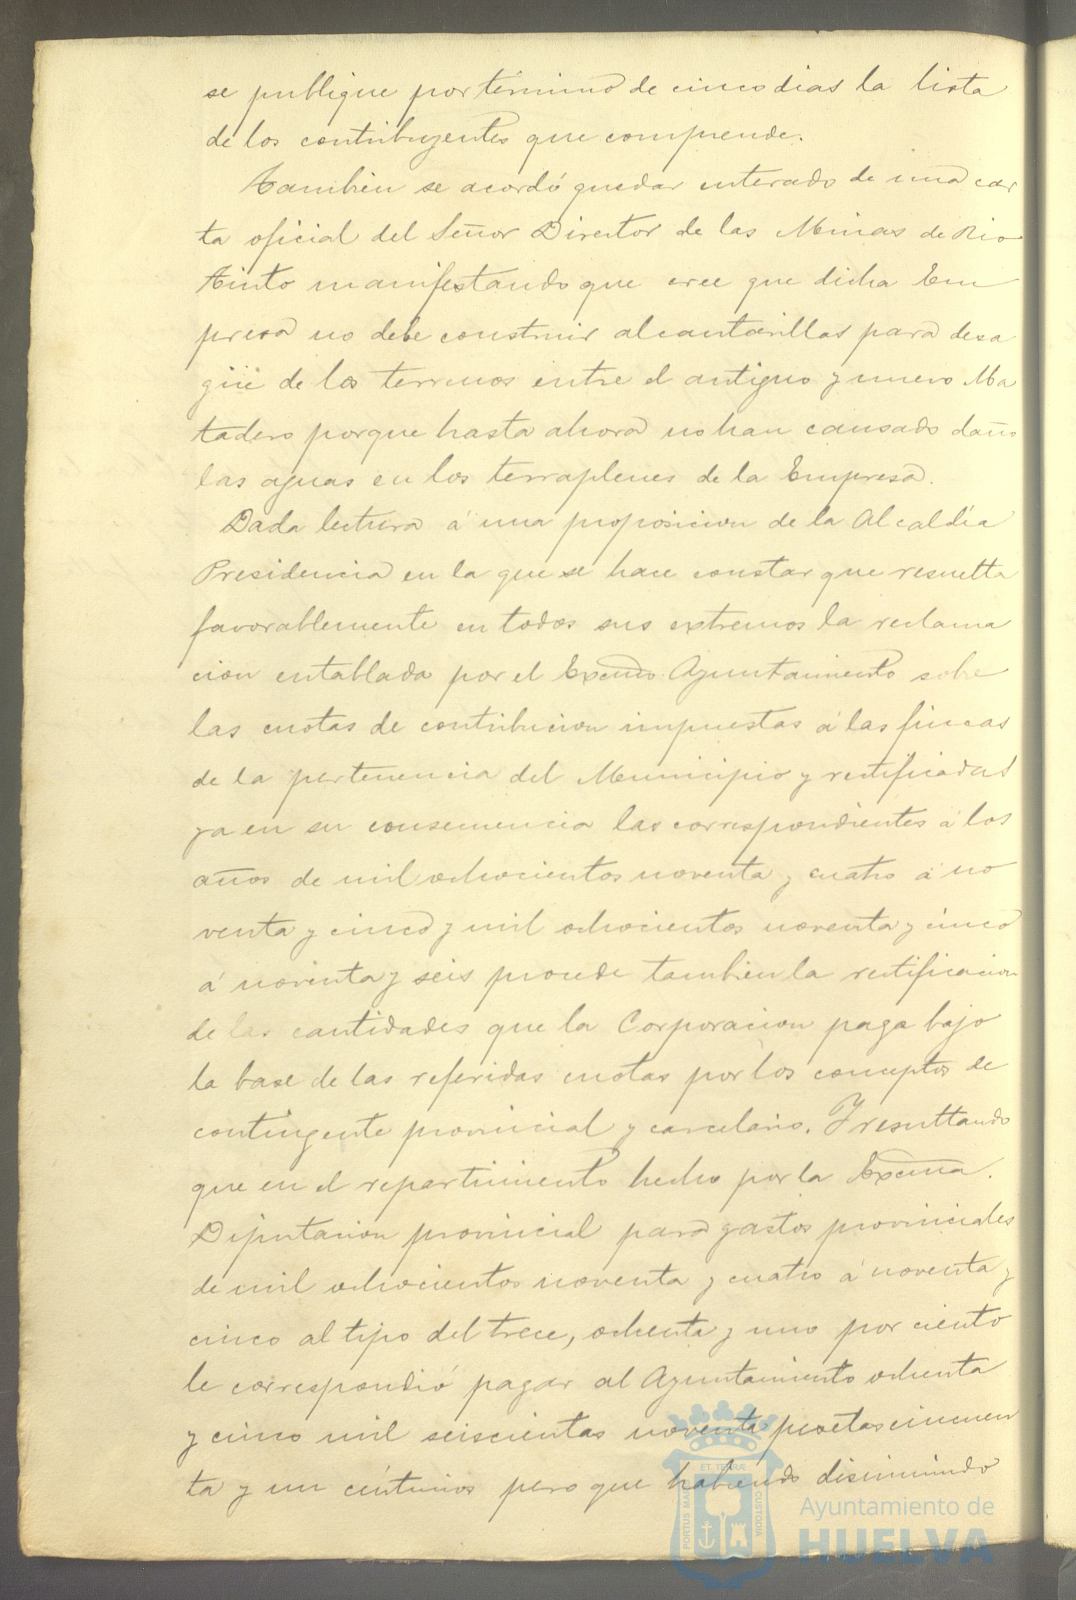 se publique por término de cinco dias la lista
de los contribuyentes que comprende.
Tambien se acordó quedar enterado de una car
ta oficial del Señor Director de las Minas de Rio
Tinto manifestando que cree que dicha Em
presa no debe construir alcantarillas para desa
güe de los terrenos entre el antiguo y nuevo Ma
tadero porque hasta ahora no han causado daño
las aguas en los terraplenes de la Empresa.
Dada lectura á una proposicion de la Alcaldía
Presidencia en la que se hace constar que resuelta
favorablemente en todos sus extremos la reclama
cion entablada por el Excmo Ayuntamiento sobre
las cuotas de contribucion impuestas á las fincas
de la pertenencia del Municipio y rectificadas
ya en su consecuencia las correspondientes á los
años de mil ochocientos noventa y cuatro á no
venta y cinco y mil ochocientos noventa y cinco
á noventa y seis procede tambien la rectificacion
de las cantidades que la Corporacion paga bajo
la base de las referidas cuotas por los conceptos de
contingente provincial y carcelario. Y resultando
que en el repartimiento hecho por la Excma.
Diputacion provincial para gastos provinciales
de mil ochocientos noventa y cuatro á noventa y
cinco al tipo del trece, ochenta y uno por ciento
le correspondió pagar al Ayuntamiento ochenta
y cinco mil seiscientas noventa pesetas cincuen
ta y un céntimos pero que habiendo disminuido
PORTUS MARIS ET TERRÆ CUSTODIA
Ayuntamiento de
HUELVA